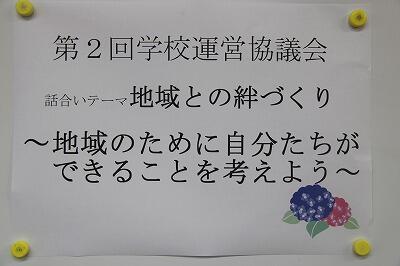 第２回学校運営協議会
話合いテーマ地域との絆づくり
～地域のために自分たちが
できることを考えよう～